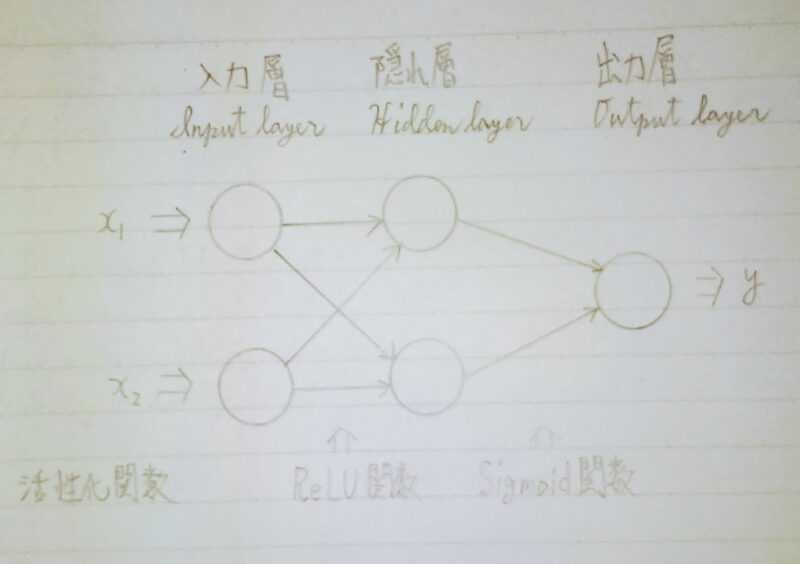 入力層 隠れ層 出力層
Input layer Hidden layer Output layer
x₁ ⇒
⇒ y
x₂ ⇒
活性化関数 ReLU関数 Sigmoid関数